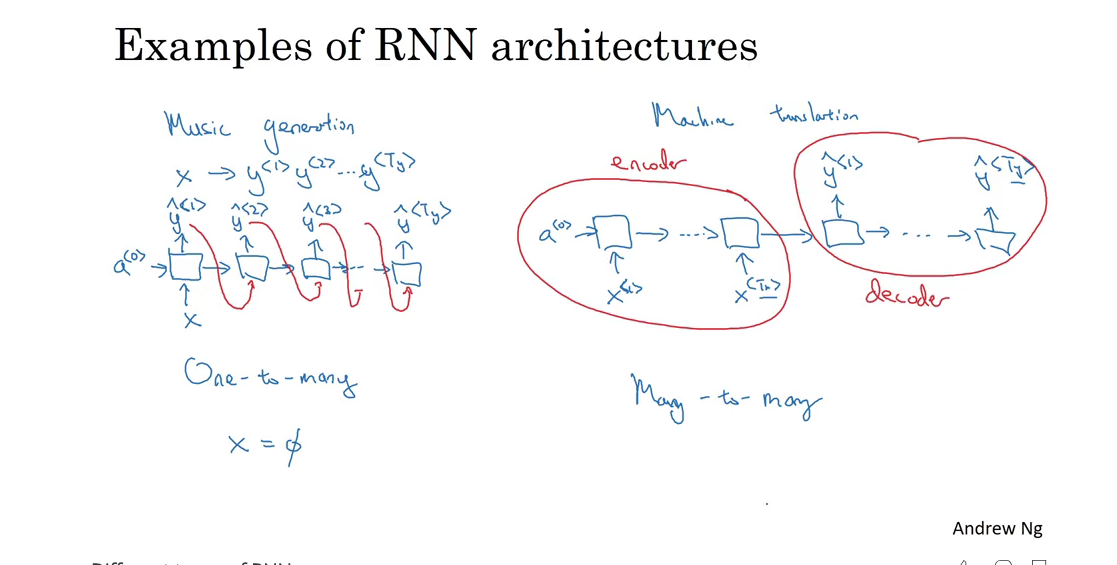 Examples of RNN architectures
Music generation
x → y<1> y<2> ... y<Ty>
ŷ<1> ŷ<2> ŷ<3> ŷ<Ty>
a<0>
...
x
One-to-many
x = ∅
Machine translation
encoder
ŷ<1> ŷ<Ty>
a<0> ... ...
x<1> x<Tx>
decoder
Many-to-many
Andrew Ng